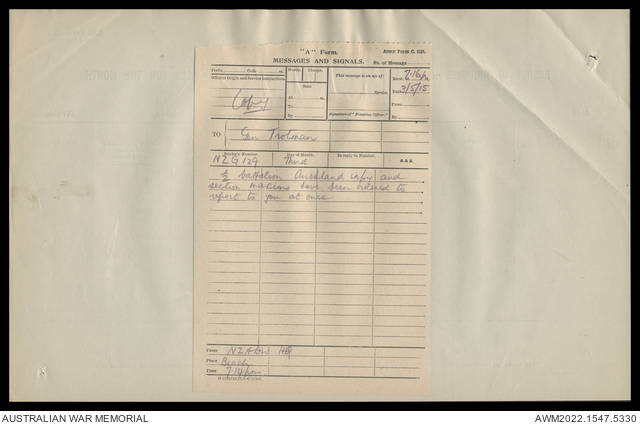 "A" Form.
Army Form C. 2121.
MESSAGES AND SIGNALS.
No. of Message
Prefix Code m.
Words. Charge.
This message is on a/c of:
Recd. 7.16 pm
Office of Origin and Service Instructions.
Sent
Service.
Date 3/5/15
Copy
At m.
From
To
By
(Signature of "Franking Officer.")
By
TO Gen Trotman
Sender's Number. Day of Month. In reply to Number. AAA
NZG 129 Third
½ battalion Auckland infy and
section maxims have been ordered to
report to you at once
From NZ & A Div HQ
Place Beach
Time 7.14 pm
AUSTRALIAN WAR MEMORIAL
AWM2022.1547.5330